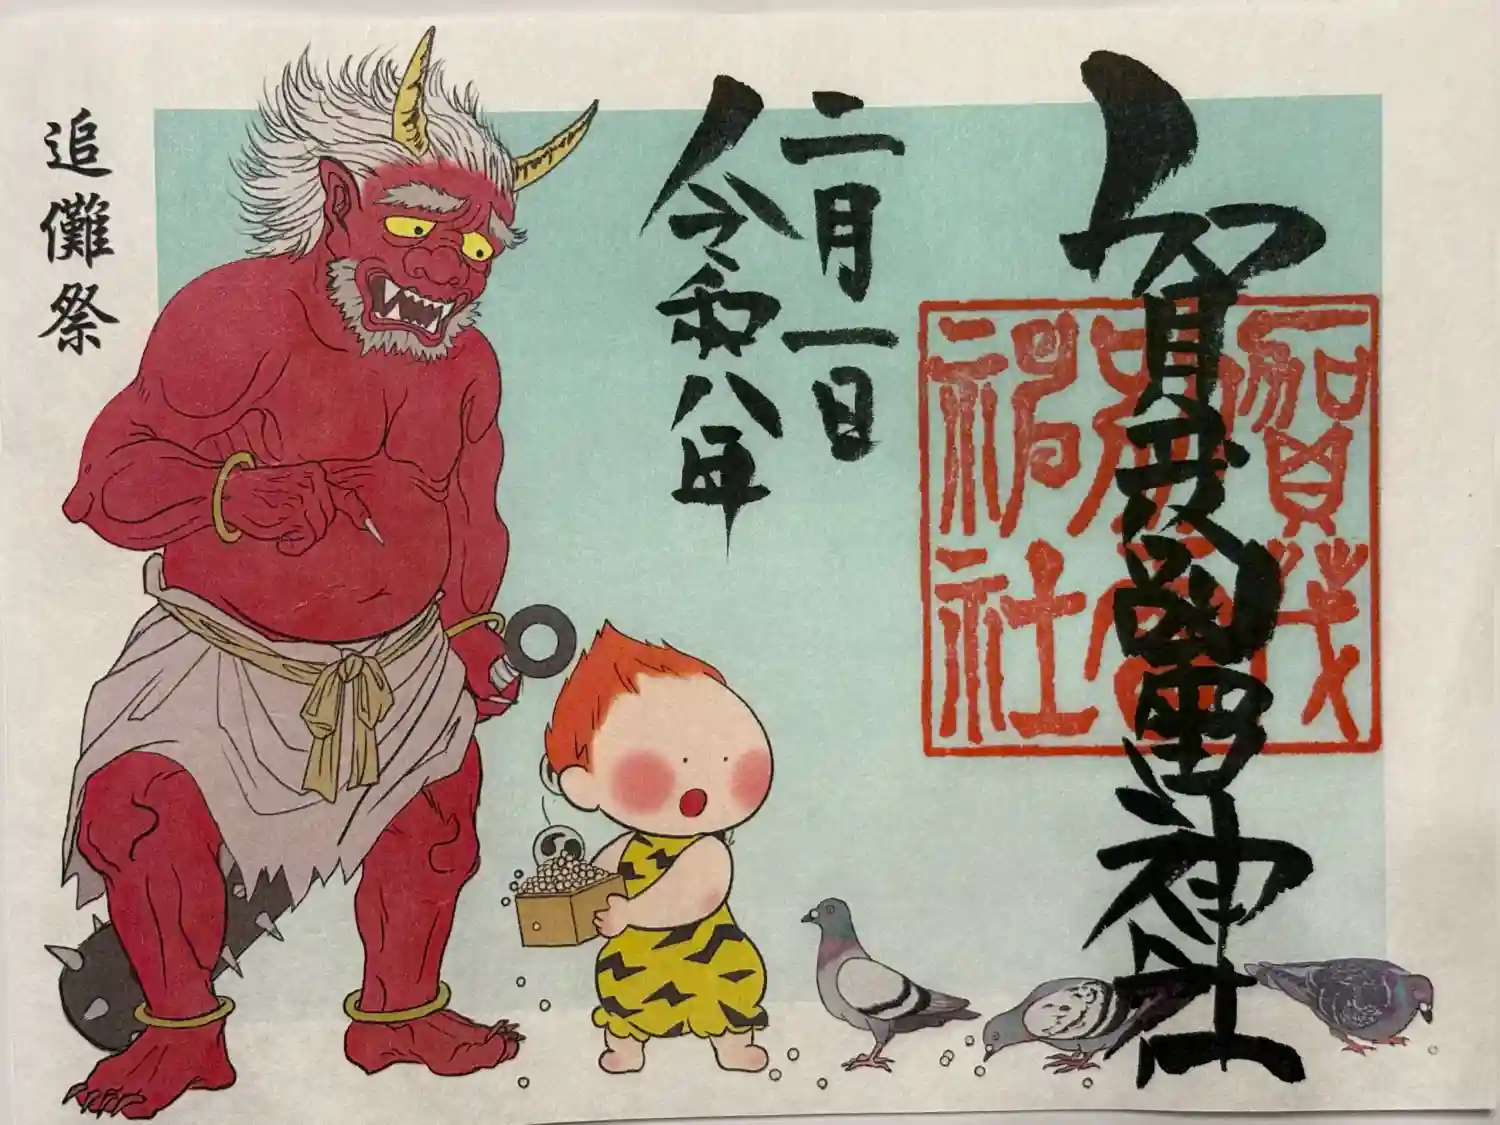 賀茂別雷神社
賀茂
社
二月一日
令和八年
追儺祭